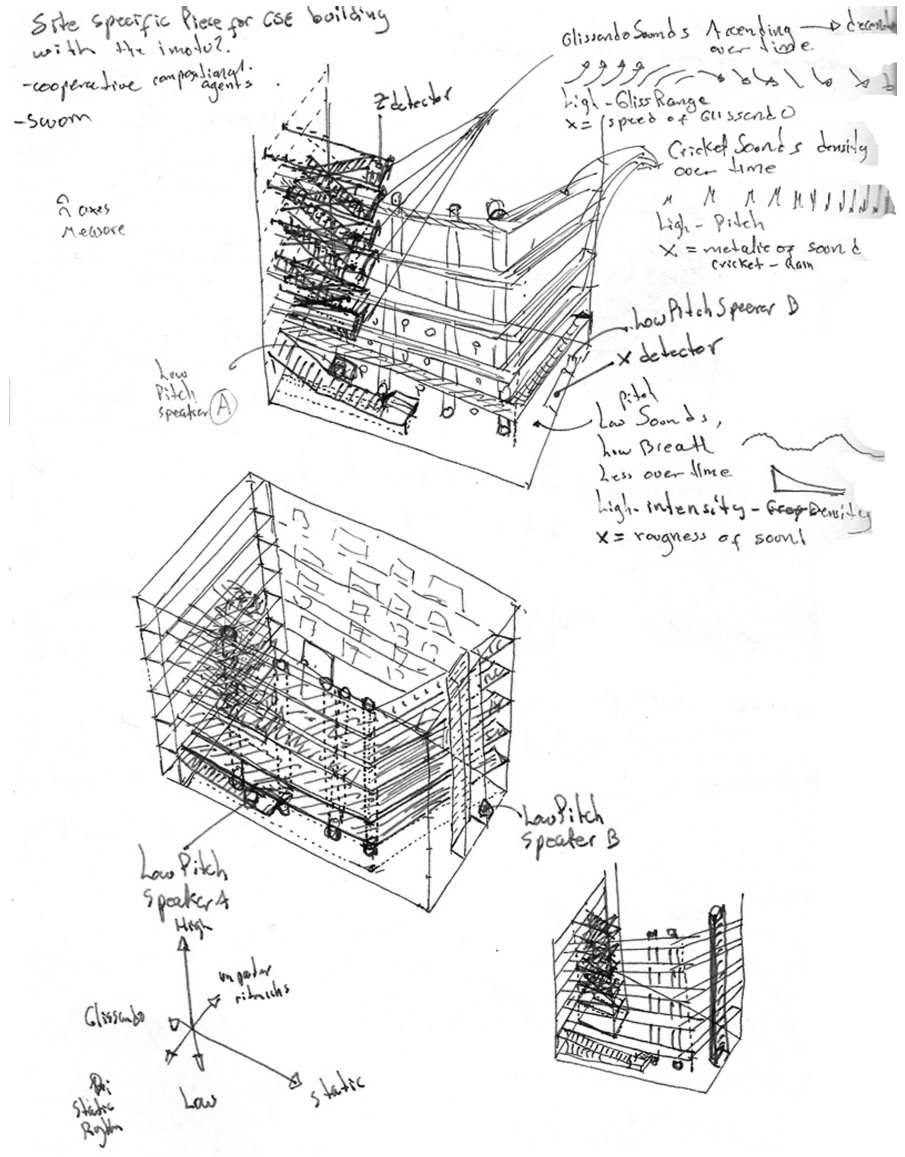 Site Specific Piece for CSE building
with the imotu2.
-cooperative compositional
agents
-swom
2 axes
Measure
Z detector
Glissando Sounds Ascending
over time
high-Gliss Range
X= speed of Glissando
Cricket Sounds density
over time
high- Pitch
X = metalic of sound
cricket - Rain
Low Pitch Speaker B
X detector
Low
Pitch
speaker A
pitch
Low Sounds,
Low Breath
Less over time
high-intensity - Density
X = rougness of sound
Low Pitch
Speaker B
Low Pitch
Speaker A
High
Glissando
Static
Low
Static